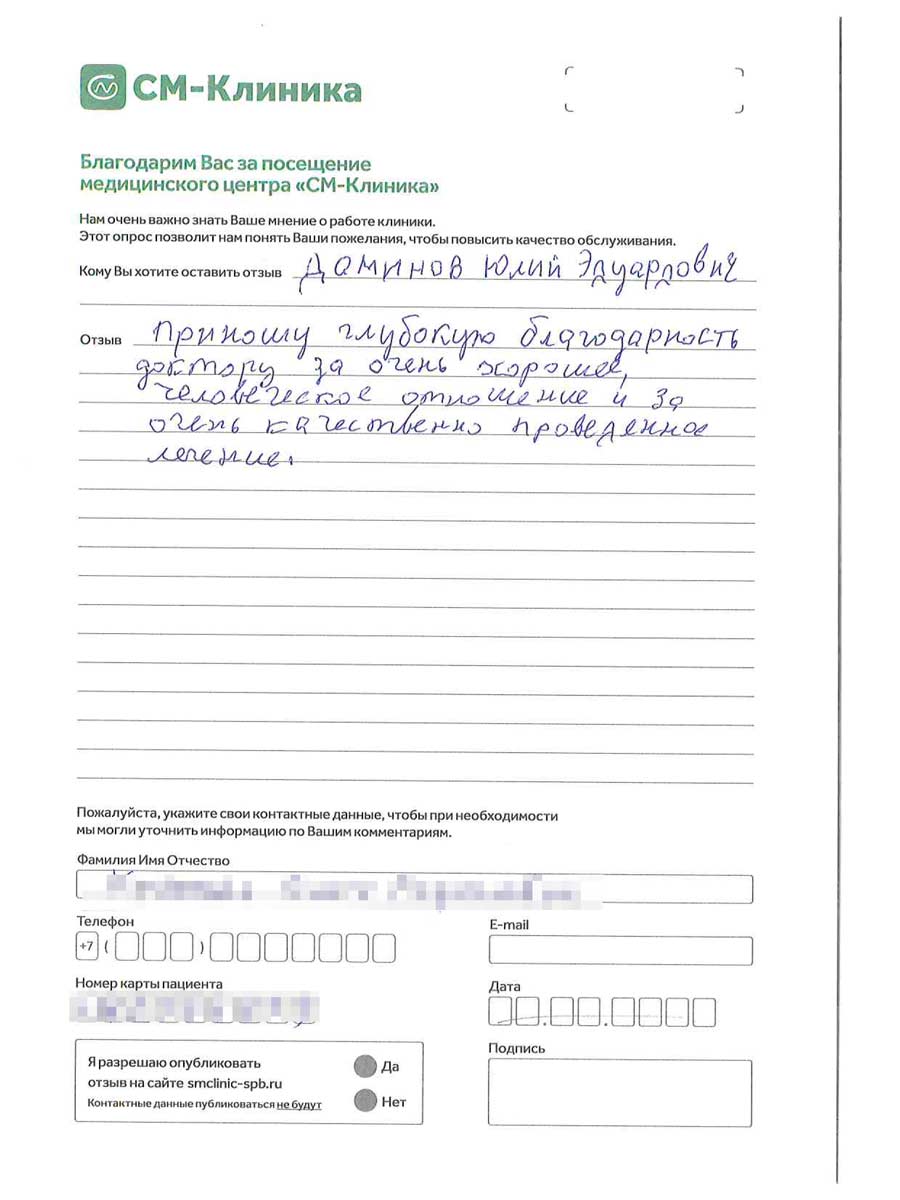 СМ-Клиника
Благодарим Вас за посещение
медицинского центра «СМ-Клиника»
Нам очень важно знать Ваше мнение о работе клиники.
Этот опрос позволит нам понять Ваши пожелания, чтобы повысить качество обслуживания.
Кому Вы хотите оставить отзыв Даминов Юлий Эдуардович
Отзыв Приношу глубокую благодарность
доктору за очень хорошее,
человеческое отношение и за
очень качественно проведенное
лечение.
Пожалуйста, укажите свои контактные данные, чтобы при необходимости
мы могли уточнить информацию по Вашим комментариям.
Фамилия Имя Отчество
Телефон
E-mail
+7 ( )
Номер карты пациента
Дата
Я разрешаю опубликовать
отзыв на сайте smclinic-spb.ru
Контактные данные публиковаться не будут
Да
Нет
Подпись